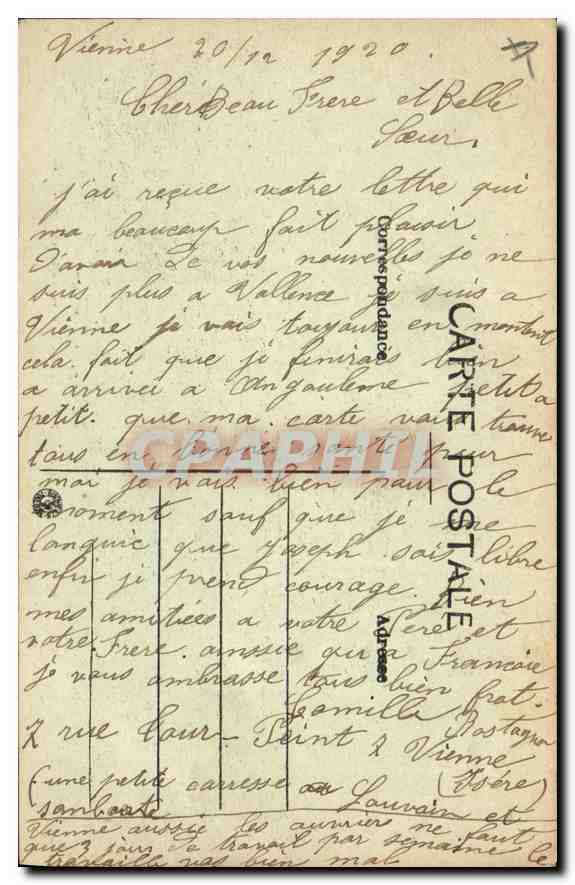 Vienne 20/12 1920.
Cher Beau Frere et Belle
Sœur,
j'ai reçue votre lettre qui
ma beaucoup fait plaisir
d'avoir de vos nouvelles je ne
suis plus a Vallence je suis a
Vienne je vais toujours en montent
cela fait que je finirais bien
a arrivée a Angouleme petit a
petit. que ma carte vous trouve
tous en bonne santé pour
moi je vais bien pour le
moment sauf que je me
languie que Joseph sois libre
enfin je prend courage. Bien
mes amitiées a votre Pere et
votre Frere aussie qu'a Francoie
je vous ambrasse tous bien frat.
Camille Rostagnon
7 rue Cour-Peint 7 Vienne
(Isére)
(une petite carresse a Louvain et
Vienne aussie les ouvrier ne font
que 3 jours de travail par semaine le
travaille vas bien mal
CARTE POSTALE
Correspondance
Adresse
CPAPHIL